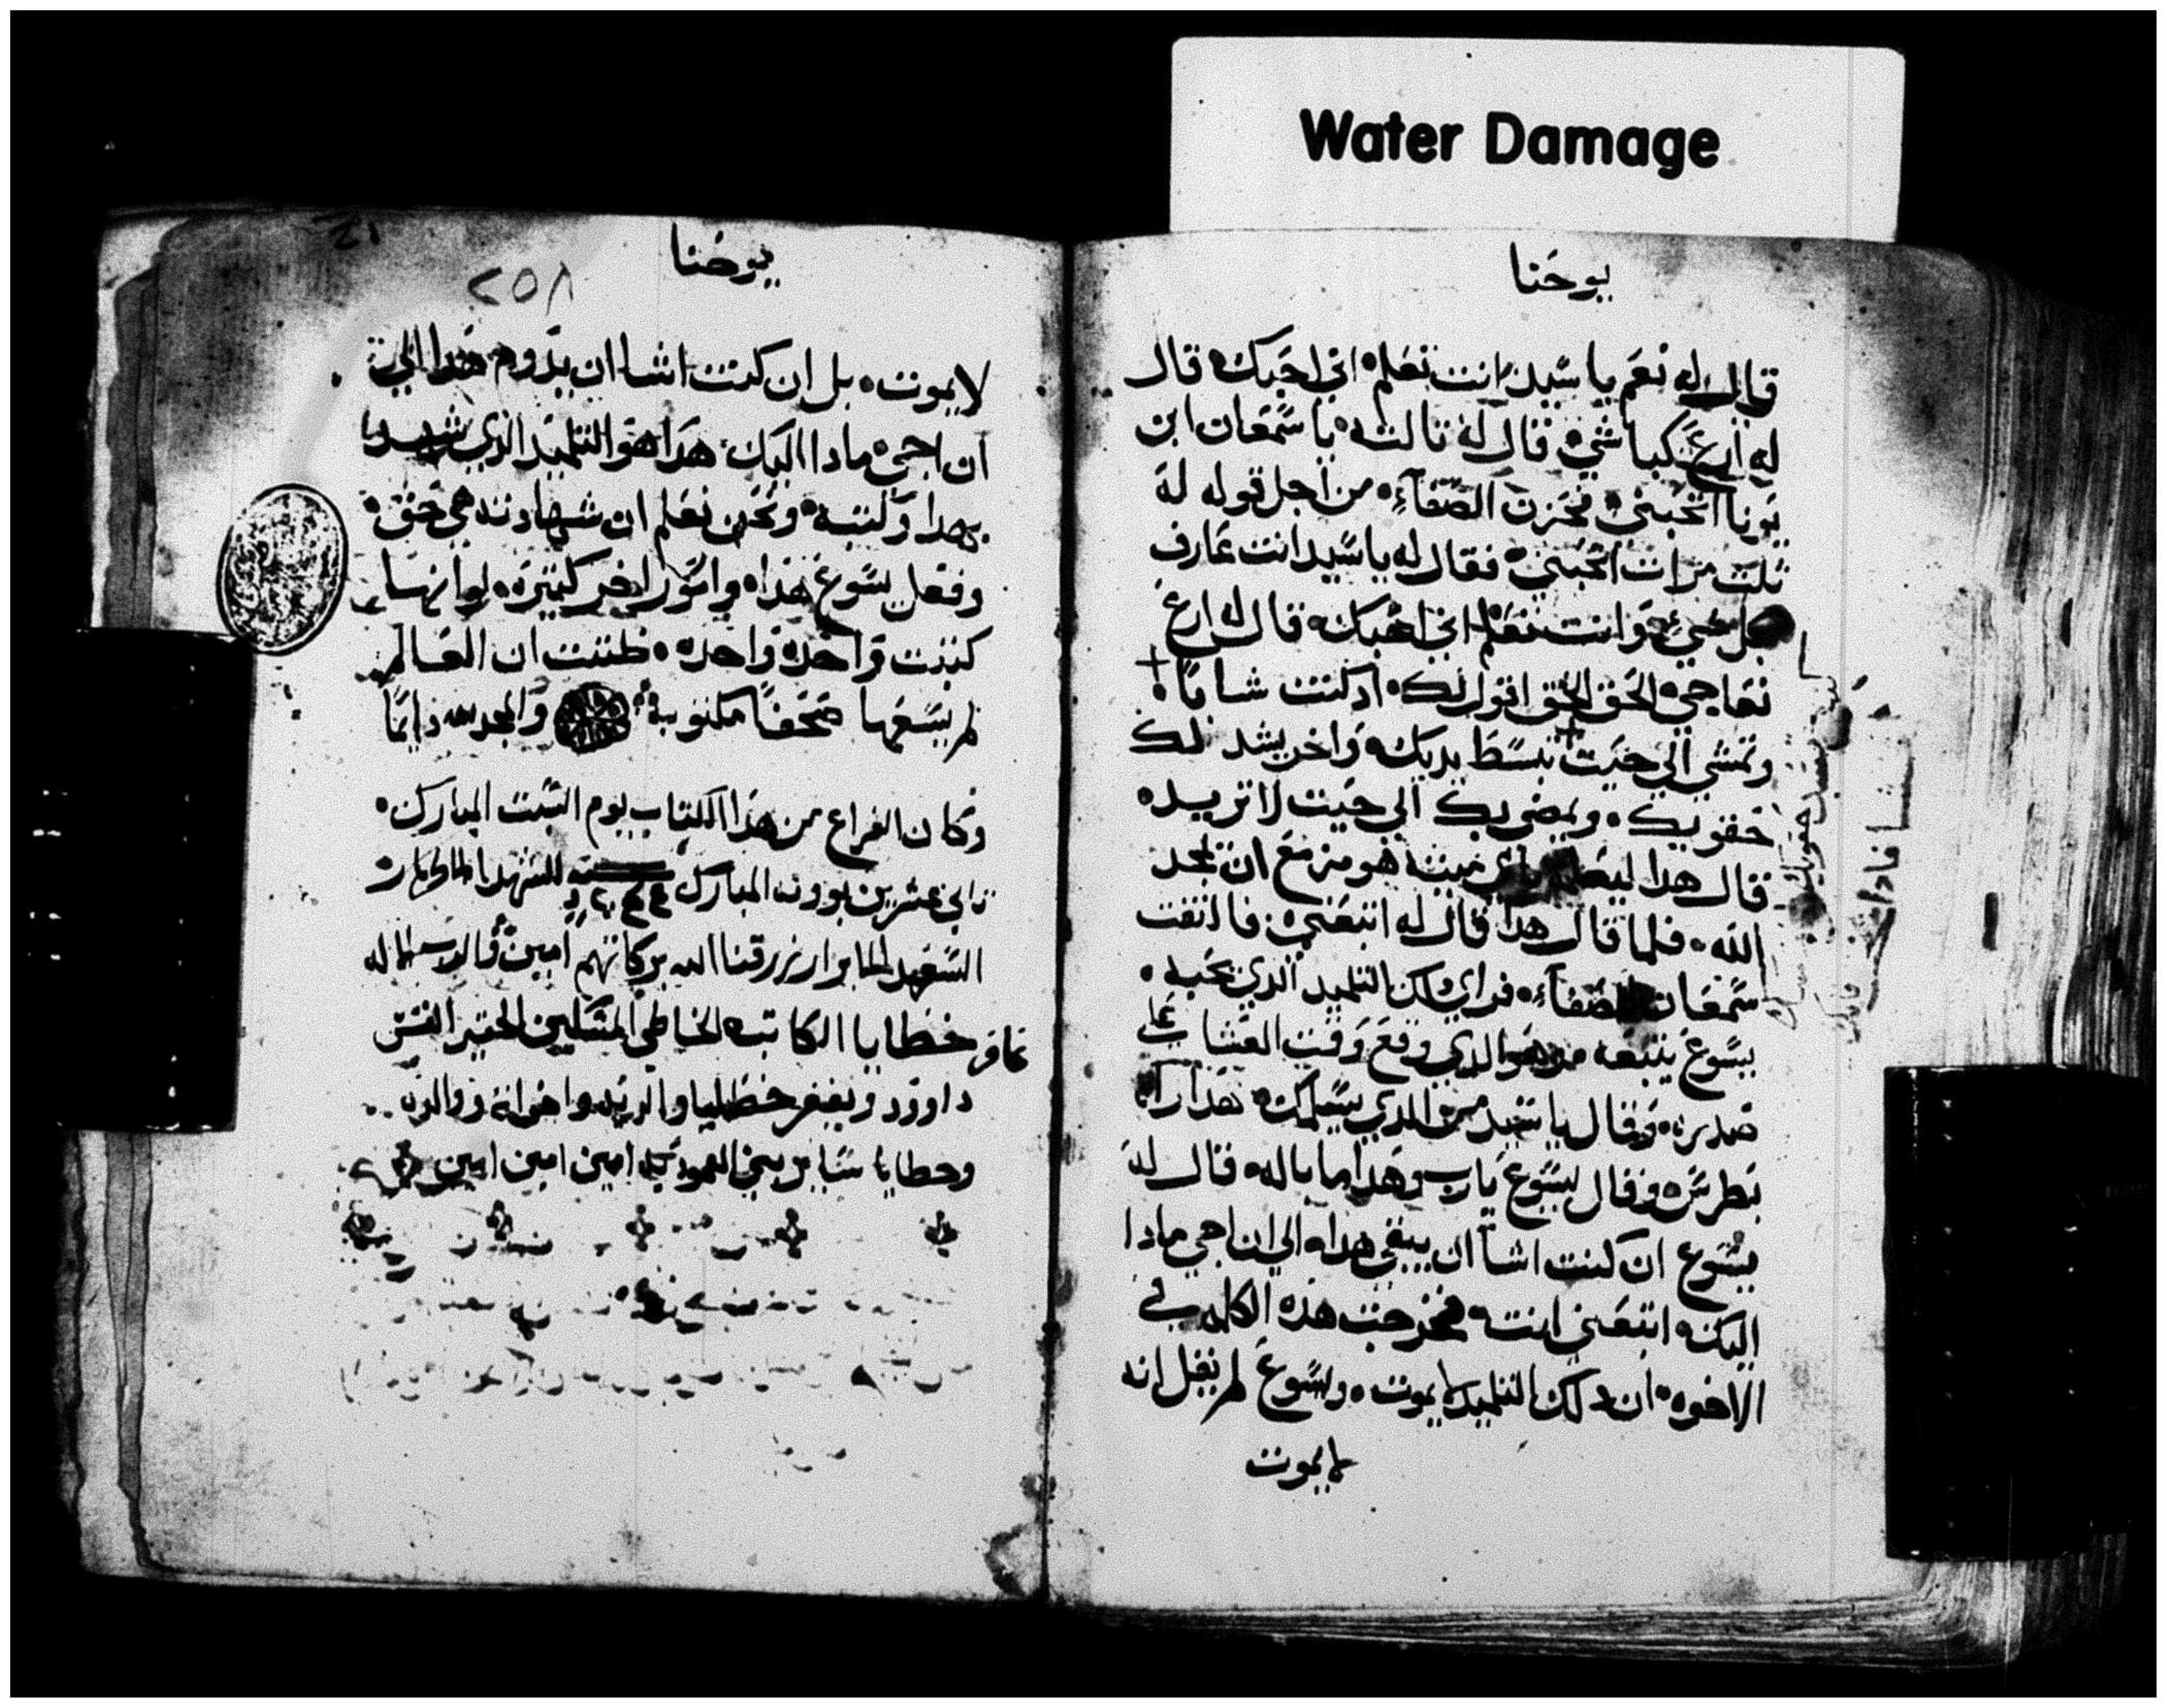 Water Damage
يوحنا
قال له نعم يا سيد انت تعلم اني احبك قال
له ارع كباشي قال له تالته يا سمعان ابن
يونا اتحبني فحزن الصفآء من اجل قوله له
تلت مرات اتحبني فقال له يا سيد انت عارف
بكل شي وانت تعلم اني احبك قال له ارع
نعاجي الحق الحق اقول لك اد كنت شابا
وتمشي الي حيت تبسط يديك واخر يشد لك
حقويك ويمضي بك الي حيت لا تريد
قال هدا ليعلم باي ميتة هو مزمع ان يمجد
الله فلما قال هدا قال له اتبعني فالتفت
سمعان الصفآء فراي دلك التلميد الدي يحبه
يسوع يتبعه وهو الدي وقع وقت العشا علي
صدره وقال يا سيد من الدي يسلمك هدا راه
بطرس وقال ليسوع يارب وهدا ما باله قال له
يسوع ان كنت اشآ ان يبقي هدا الي ان اجي مادا
اليك اتبعني انت فخرجت هذه الكلمه في
الاخوه ان دلك التلميد لا يموت ويسوع لم يقل انه
لا يموت
يوحنا
٢٥٨
لا يموت بل ان كنت اشا ان يدوم هدا الي
ان اجي مادا اليك هدا هو التلميد الدي شهد
بهدا وكتبه ونحن نعلم ان شهادته هي حق
وفعل يسوع هدا وامور اخر كتيره لو انها
كتبت واحده واحده ظننت ان العالم
لم يسعها صحفا مكتوبة والمجد لله دايما
وكان الفراغ من هدا الكتاب يوم السبت المبارك
تاني عشرين بوونه المبارك سنة للشهدا الاطهار
السعدا الابرار رزقنا الله بركاتهم امين
غافر خطايا الكاتب الخاطي المسكين الحقير القس
داوود ويغفر خطايا والديه واخوانه
وخطايا ساير بني المعموديه امين امين امين